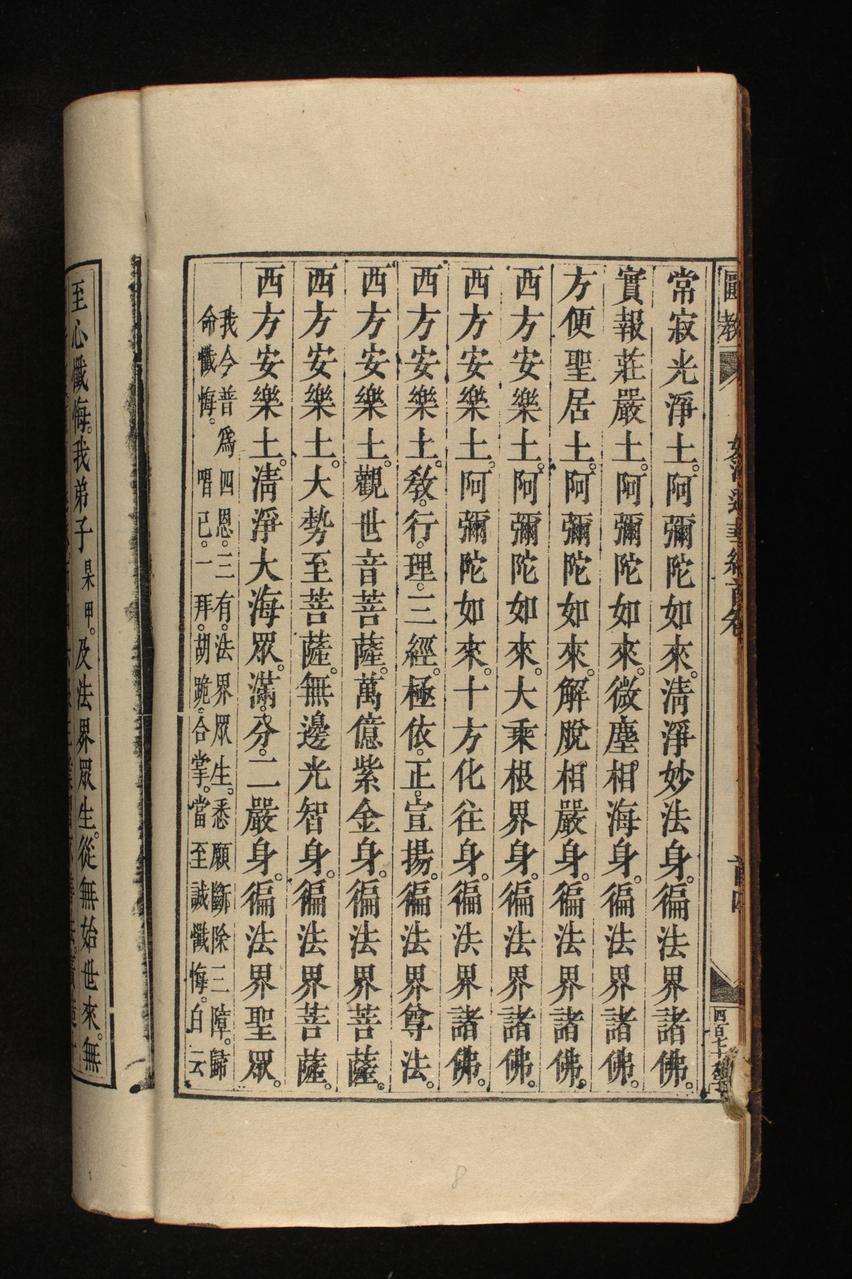 圖教
妙法蓮華經首卷
首四
常寂光淨土。阿彌陀如來。清淨妙法身。徧法界諸佛。
實報莊嚴土。阿彌陀如來。微塵相海身。徧法界諸佛。
方便聖居土。阿彌陀如來。解脫相嚴身。徧法界諸佛。
西方安樂土。阿彌陀如來。大乘根界身。徧法界諸佛。
西方安樂土。阿彌陀如來。十方化往身。徧法界諸佛。
西方安樂土。教。行。理。三經。極依。正。宣揚。徧法界尊法。
西方安樂土。觀世音菩薩。萬億紫金身。徧法界菩薩。
西方安樂土。大勢至菩薩。無邊光智身。徧法界菩薩。
西方安樂土。清淨大海眾。滿。分。二嚴身。徧法界聖眾。
我今普為四恩。三有。法界眾生。悉願斷除三障。歸
命懺悔。唱已。一拜。胡跪。合掌。當至誠懺悔。白云
至心懺悔。我弟子某甲。及法界眾生。從無始世來。無
8